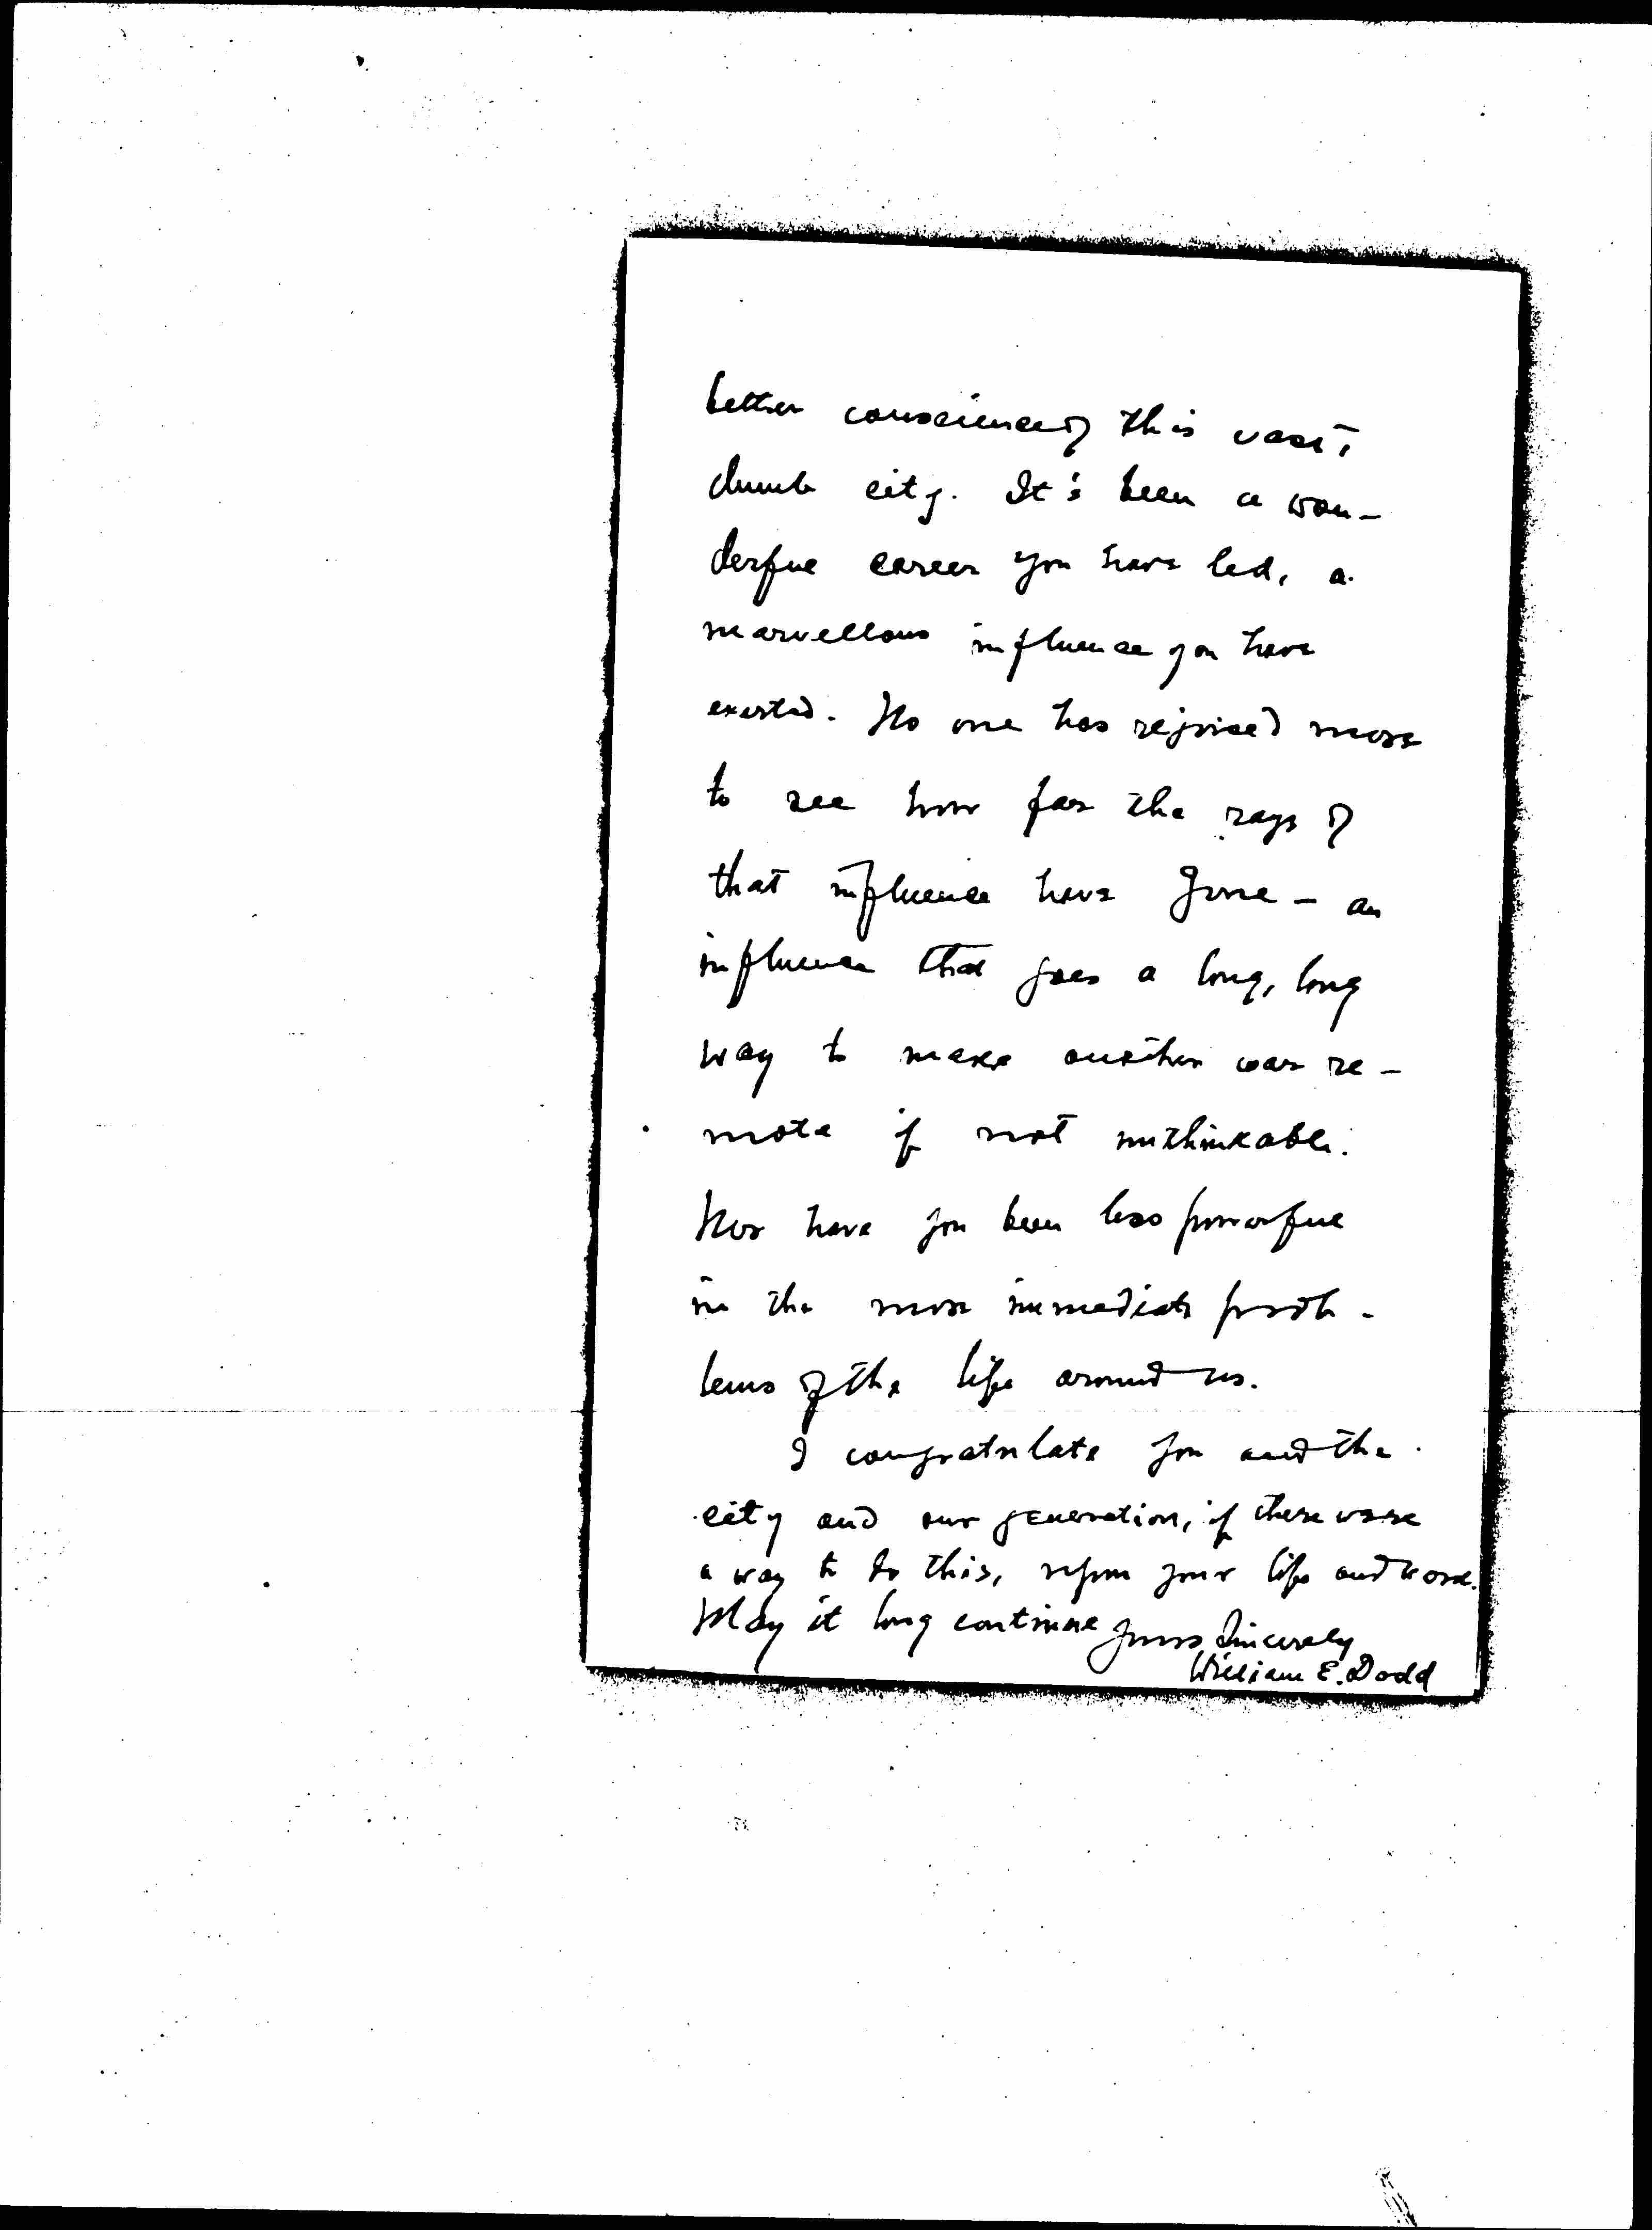 better conscience of this vast,
dumb city. It's been a won-
derful career you have led, a
marvellous influence you have
exerted. No one has rejoiced more
to see how far the rays of
that influence have gone - an
influence that goes a long, long
way to make another war re-
mote if not unthinkable.
Nor have you been less powerful
in the more immediate prob-
lems of the life around us.
I congratulate you and the
city and our generation, if there were
a way to do this, upon your life and work.
May it long continue Yours Sincerely
William E. Dodd